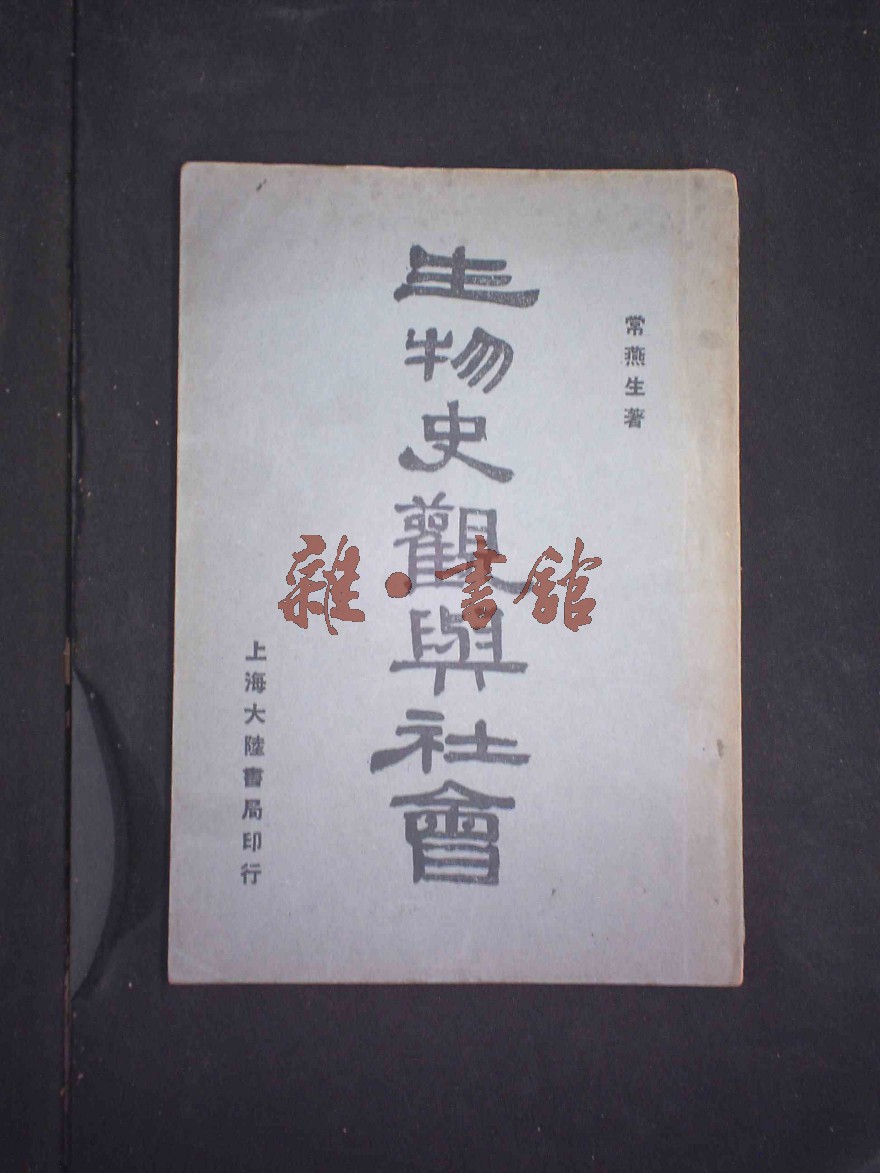 常燕生著
生物史觀與社會
上海大陸書局印行
雜·書館